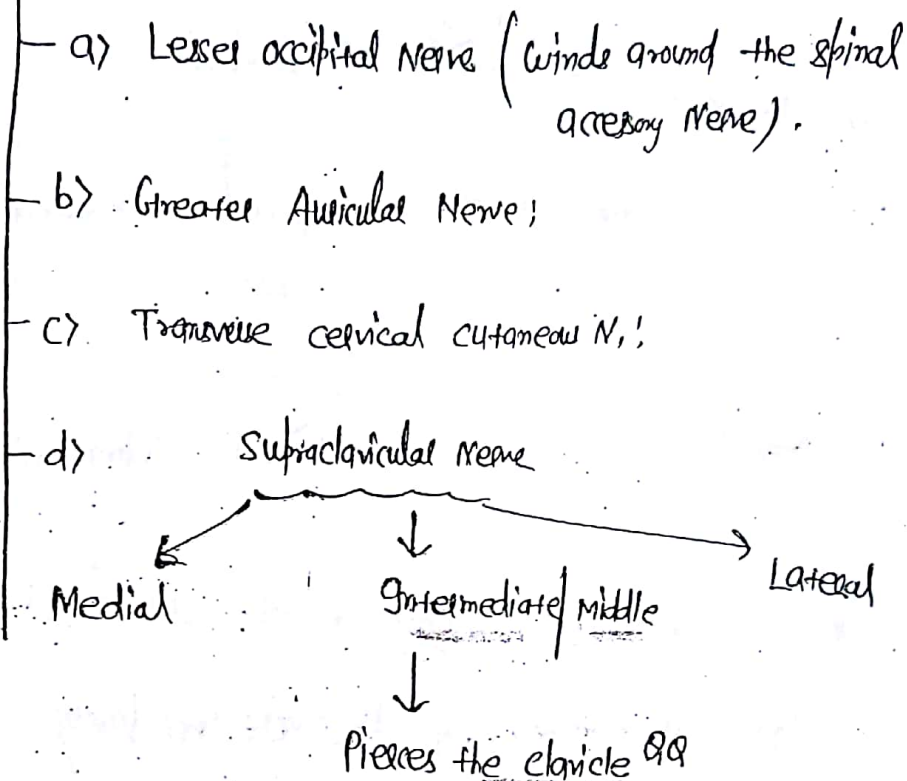 a) Lesser occipital Nerve (winds around the spinal
accessory Nerve).
b) Greater Auricular Nerve;
c) Transverse cervical cutaneous N,;
d) Supraclavicular Nerve
Medial Intermediate/Middle Lateral
Pierces the clavicle QQ